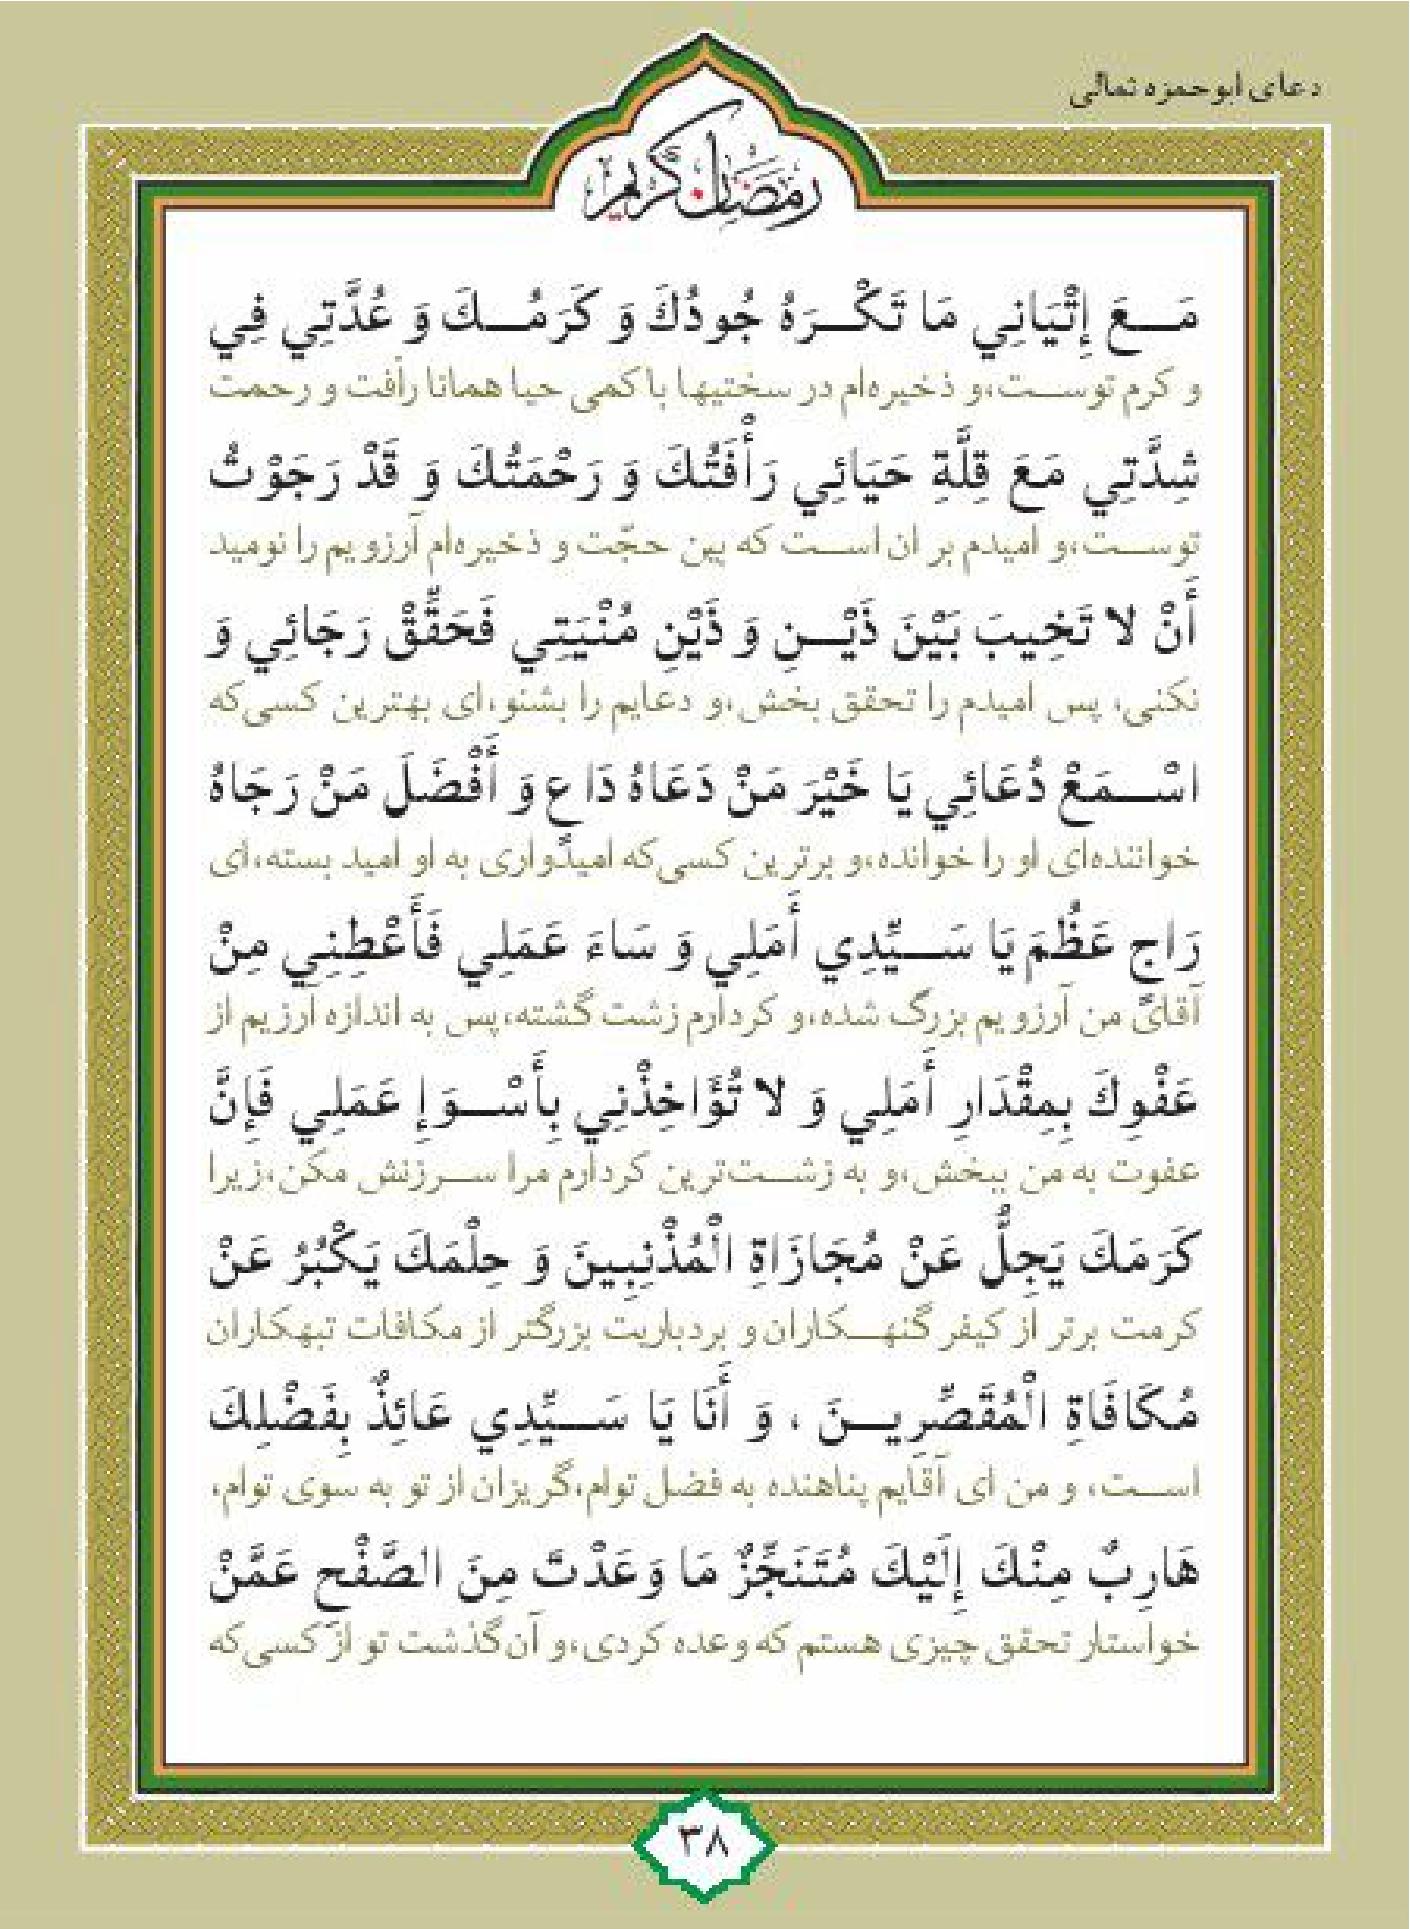 دعای ابوحمزه ثمالی
رمضان کریم
مَعَ إِتْيَانِي مَا تَكْرَهُ جُودُكَ وَ كَرَمُكَ وَ عُدَّتِي فِي
و کرم توست،و ذخیره‌ام در سختیها با کمی حیا همانا رأفت و رحمت
شِدَّتِي مَعَ قِلَّةِ حَيَائِي رَأْفَتُكَ وَ رَحْمَتُكَ وَ قَدْ رَجَوْتُ
توست،و امیدم بر ان است که بین حجّت و ذخیره‌ام آرزویم را نومید
أَنْ لا تَخِيبَ بَيْنَ ذَيْنِ وَ ذَيْنِ مُنْيَتِي فَحَقِّقْ رَجَائِي وَ
نکنی، پس امیدم را تحقق بخش،و دعایم را بشنو،ای بهترین کسی‌که
اسْمَعْ دُعَائِي يَا خَيْرَ مَنْ دَعَاهُ دَاعٍ وَ أَفْضَلَ مَنْ رَجَاهُ
خواننده‌ای او را خوانده،و برترین کسی‌که امیدواری به او امید بسته،ای
رَاجٍ عَظُمَ يَا سَيِّدِي أَمَلِي وَ سَاءَ عَمَلِي فَأَعْطِنِي مِنْ
آقای من آرزویم بزرگ شده،و کردارم زشت گشته،پس به اندازه آرزیم از
عَفْوِكَ بِمِقْدَارِ أَمَلِي وَ لا تُؤَاخِذْنِي بِأَسْوَإِ عَمَلِي فَإِنَّ
عفوت به من ببخش،و به زشت‌ترین کردارم مرا سرزنش مکن،زیرا
كَرَمَكَ يَجِلُّ عَنْ مُجَازَاةِ الْمُذْنِبِينَ وَ حِلْمَكَ يَكْبُرُ عَنْ
کرمت برتر از کیفر گنهکاران و بردباریت بزرگتر از مکافات تبهکاران
مُكَافَاةِ الْمُقَصِّرِينَ ، وَ أَنَا يَا سَيِّدِي عَائِذٌ بِفَضْلِكَ
است، و من ای آقایم پناهنده به فضل توام،گریزان از تو به سوی توام،
هَارِبٌ مِنْكَ إِلَيْكَ مُتَنَجِّزٌ مَا وَعَدْتَ مِنَ الصَّفْحِ عَمَّنْ
خواستار تحقق چیزی هستم که وعده کردی،و آن گذشت تو از کسی‌که
۳۸